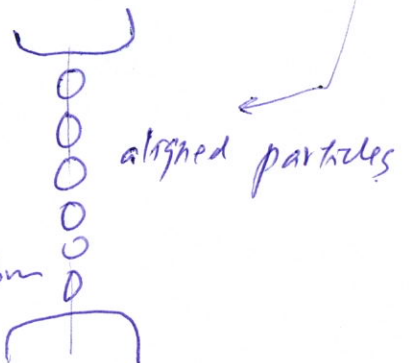 aligned particles